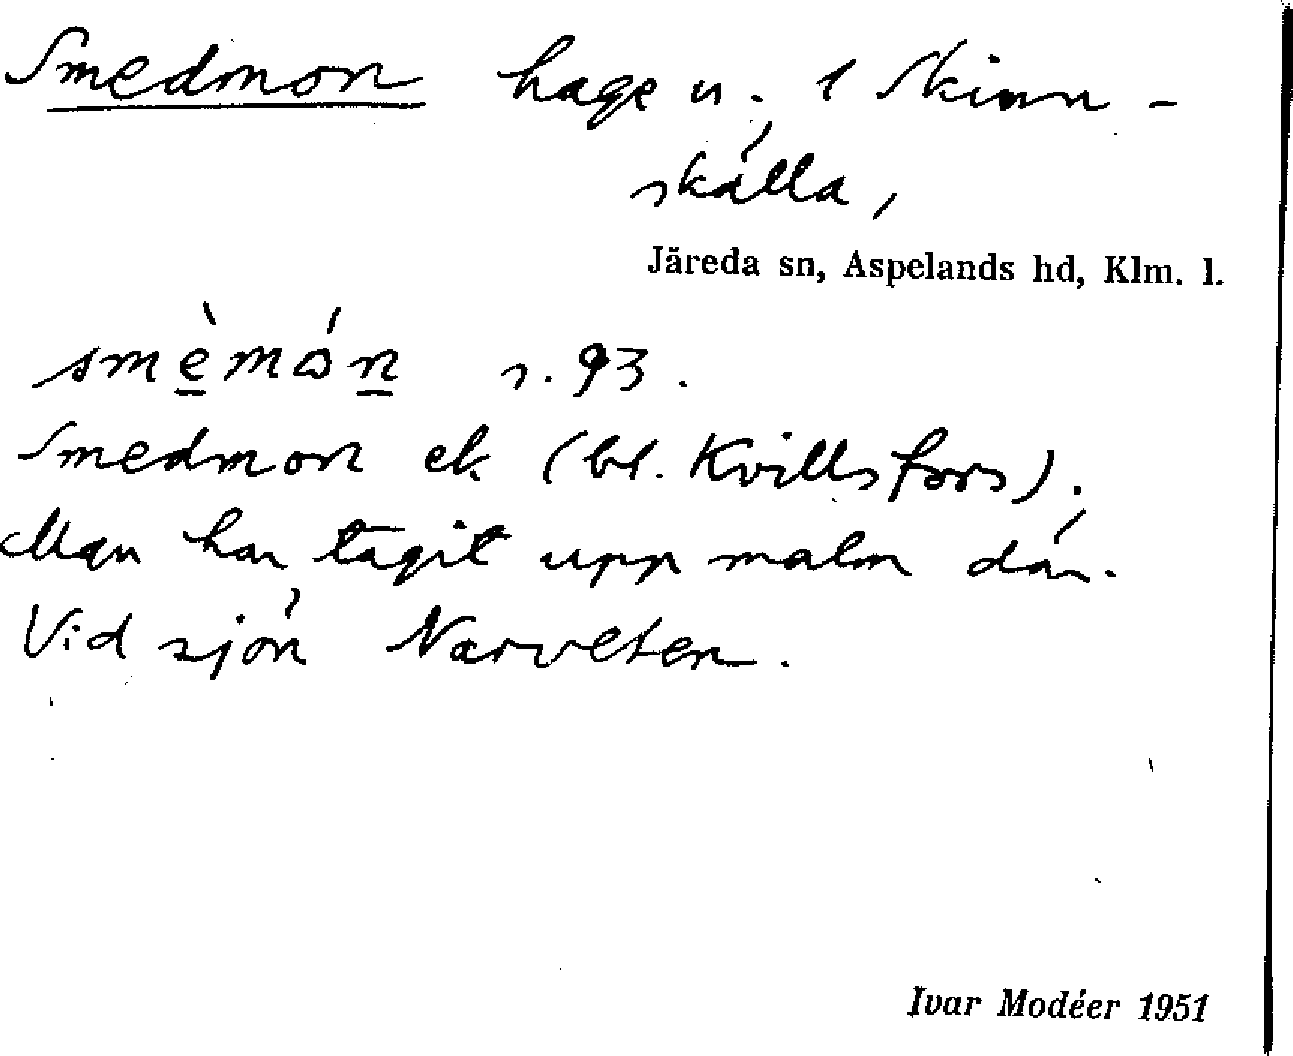 Smedmon hage u. 1 Skinn-
skälla,
Järeda sn, Aspelands hd, Klm. l.
smèmón s. 93.
Smedmon ek (bl. Kvillsfors).
Man har tagit upp malm där.
Vid sjön Narveten.
Ivar Modéer 1951